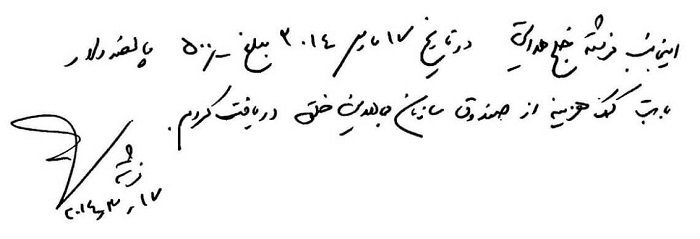 اینجانب فرشته خلج هدایتی در تاریخ ۱۷ مارس ۲۰۱۴ مبلغ ۵۰۰ پانصد دلار
بابت کمک هزینه از صندوق سازمان مجاهدین خلق دریافت کردم.
فرشته
۱۷ ر ۳ ر ۲۰۱۴